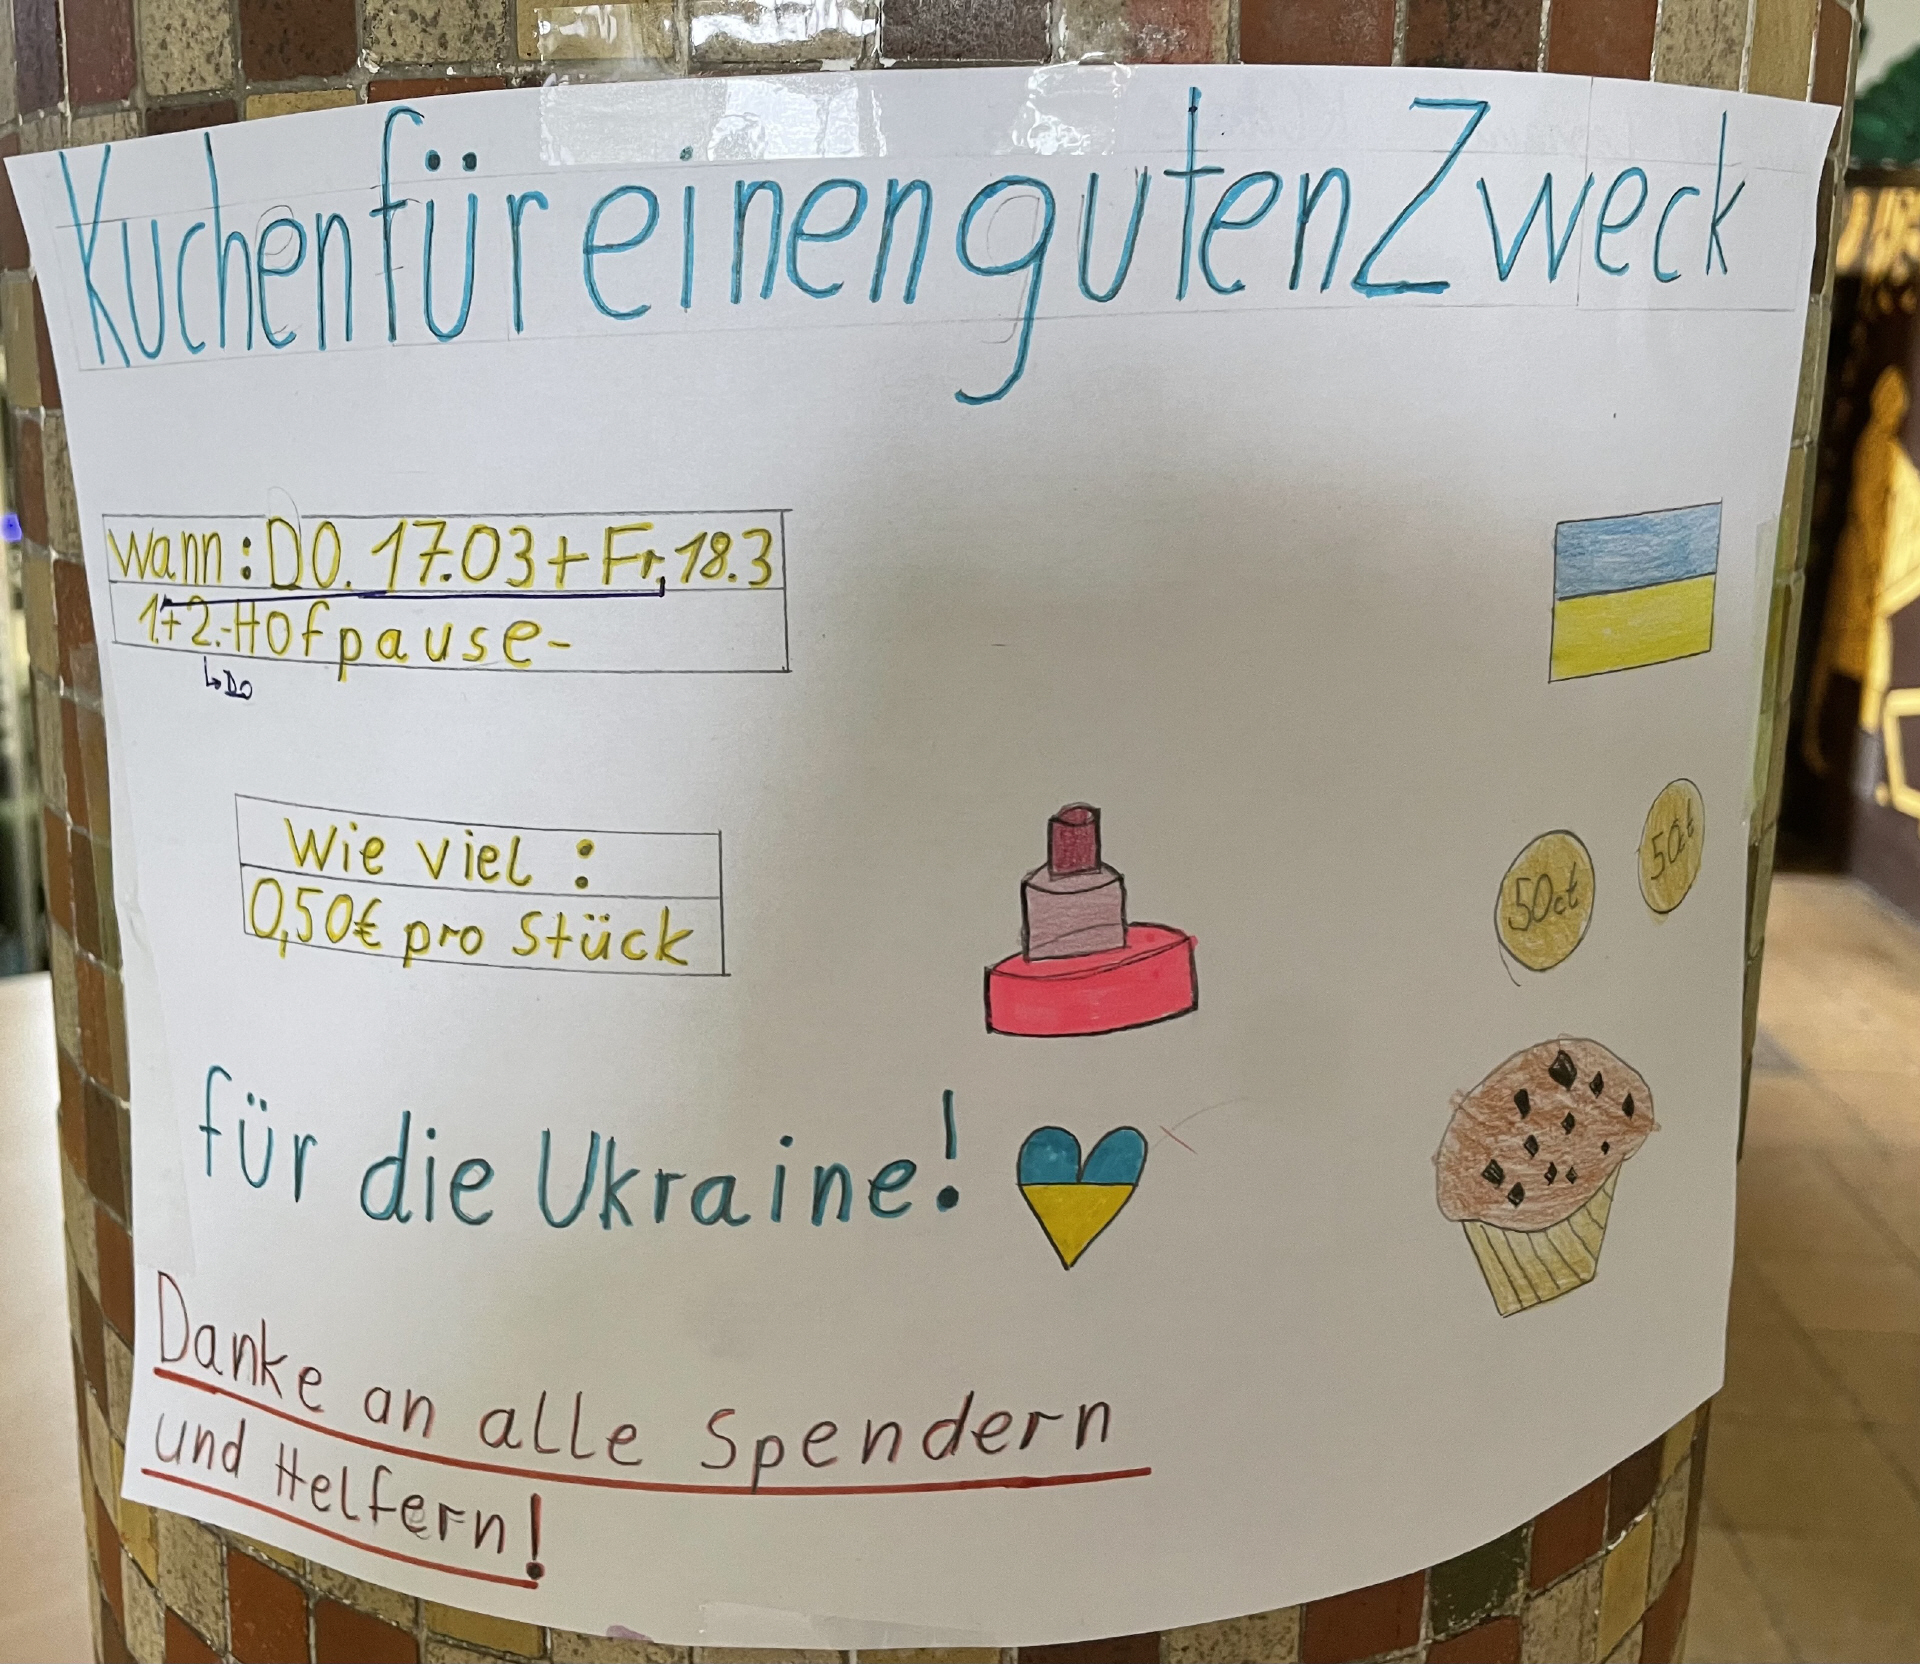 Kuchen für einen guten Zweck
wann: DO. 17.03 + Fr, 18.3
1.+2.-Hofpause-
↳ DO
Wie viel:
0,50€ pro Stück
50ct
50ct
für die Ukraine!
Danke an alle Spendern
und Helfern!